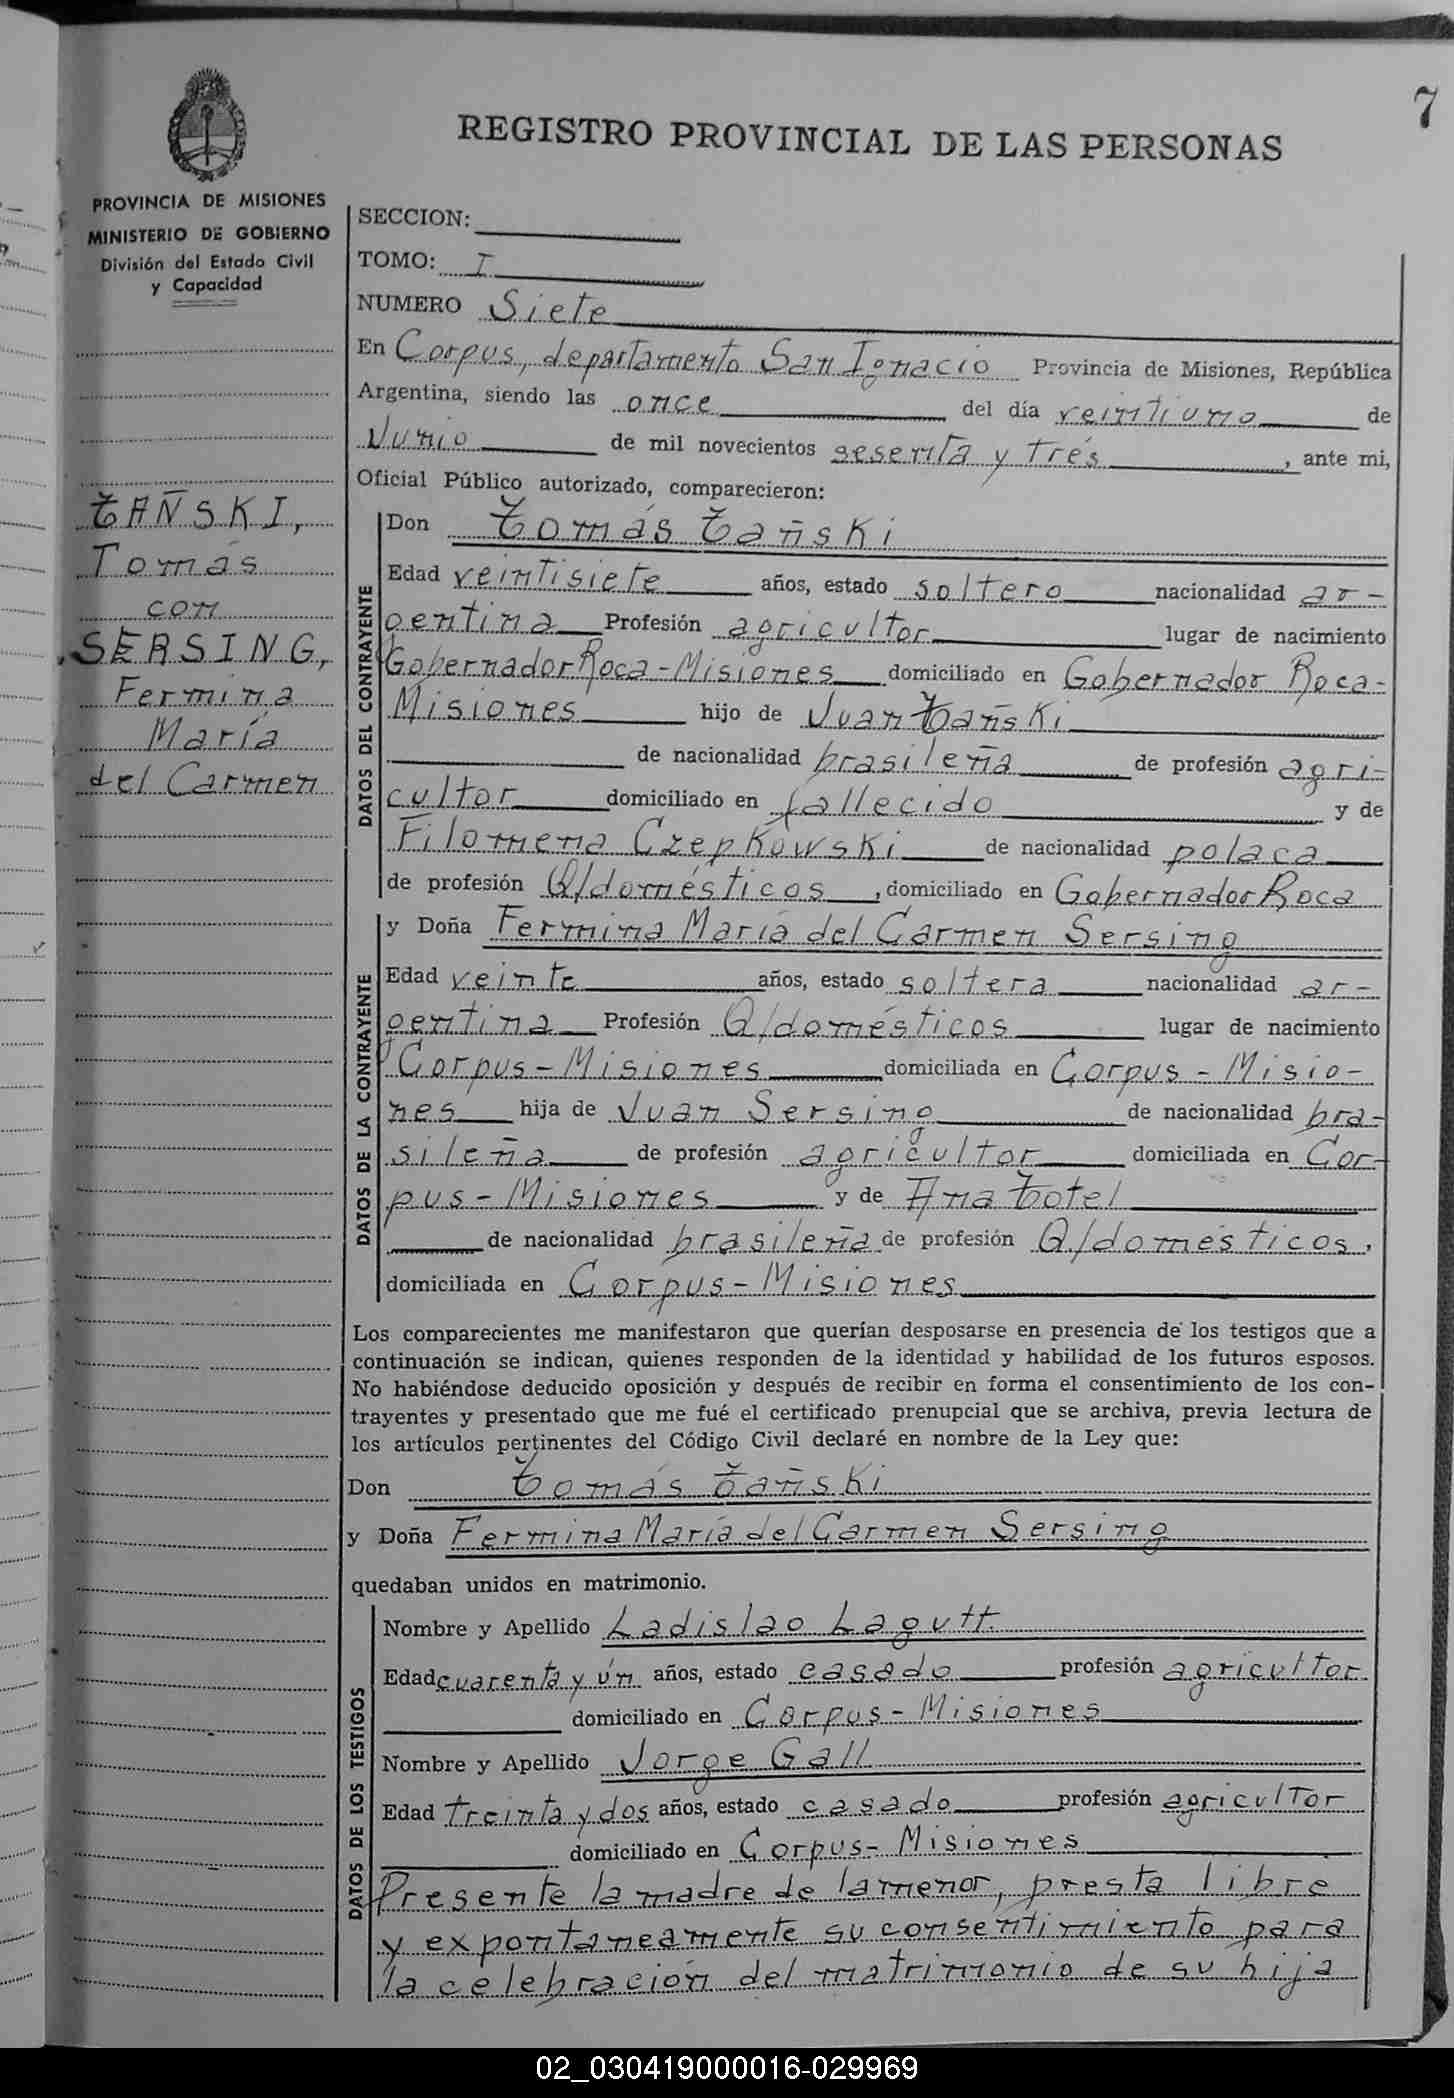 7
REGISTRO PROVINCIAL DE LAS PERSONAS
PROVINCIA DE MISIONES
MINISTERIO DE GOBIERNO
División del Estado Civil
y Capacidad
TAÑSKI,
Tomás
con
SERSING,
Fermina
María
del Carmen
SECCION:
TOMO: I
NUMERO Siete
En Corpus, departamento San Ignacio Provincia de Misiones, República
Argentina, siendo las once del día veintiuno de
Junio de mil novecientos sesenta y tres, ante mi,
Oficial Público autorizado, comparecieron:
DATOS DEL CONTRAYENTE
Don Tomás Tañski
Edad veintisiete años, estado soltero nacionalidad ar-
gentina Profesión agricultor lugar de nacimiento
Gobernador Roca-Misiones domiciliado en Gobernador Roca-
Misiones hijo de Juan Tañski
de nacionalidad brasileña de profesión agri-
cultor domiciliado en fallecido y de
Filomena Czepkowski de nacionalidad polaca
de profesión Q/domésticos, domiciliado en Gobernador Roca
DATOS DE LA CONTRAYENTE
y Doña Fermina María del Carmen Sersing
Edad veinte años, estado soltera nacionalidad ar-
gentina Profesión Q/domésticos lugar de nacimiento
Corpus-Misiones domiciliada en Corpus-Misio-
nes hija de Juan Sersing de nacionalidad bra-
sileña de profesión agricultor domiciliada en Cor-
pus-Misiones y de Ana Totel
de nacionalidad brasileña de profesión Q/domésticos,
domiciliada en Corpus-Misiones
Los comparecientes me manifestaron que querían desposarse en presencia de los testigos que a
continuación se indican, quienes responden de la identidad y habilidad de los futuros esposos.
No habiéndose deducido oposición y después de recibir en forma el consentimiento de los con-
trayentes y presentado que me fué el certificado prenupcial que se archiva, previa lectura de
los artículos pertinentes del Código Civil declaré en nombre de la Ley que:
Don Tomás Tañski
y Doña Fermina María del Carmen Sersing
quedaban unidos en matrimonio.
DATOS DE LOS TESTIGOS
Nombre y Apellido Ladislao Lagutt
Edad cuarenta y ún años, estado casado profesión agricultor
domiciliado en Corpus-Misiones
Nombre y Apellido Jorge Gall
Edad treinta y dos años, estado casado profesión agricultor
domiciliado en Corpus-Misiones
Presente la madre de la menor, presta libre
y expontaneamente su consentimiento para
la celebración del matrimonio de su hija
02_030419000016-029969